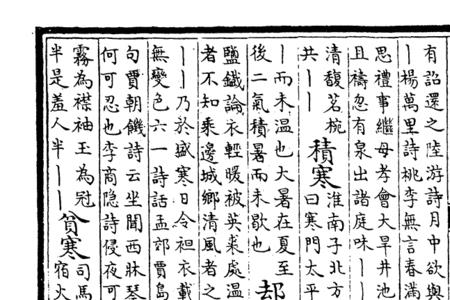 有詔還之陸游詩月中欲與
丨楊萬里詩桃李無言春滿
思禮事繼母孝會大旱井池
且禱忽有泉出諸庭味丨丨
清馥茗椀
共丨丨
積寒
淮南子北方
曰寒門太平
丨而未溫也大暑在夏至
後二氣積暑而未歇也
却
鹽鐵論衣輕暖被英裘處溫
者不知乘邊城鄉清風者之
丨丨乃於盛寒日令袒衣載
無變色六一詩話孟郊賈島
句賈朝饑詩云坐聞西牀琴
何可忍也李商隱詩侵夜可
霧為襟袖玉為冠
半是羞人半丨丨
貧寒
司馬
宿火